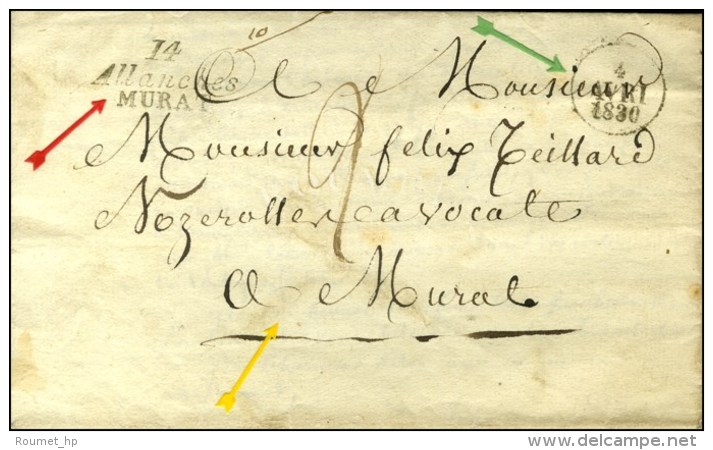 10
14
Allanches
MURAT
4
AVRI
1830
A Monsieur
Monsieur felix Teillard
Nozerolles avocate
A Murat
Roumet_hp
www.delcampe.net